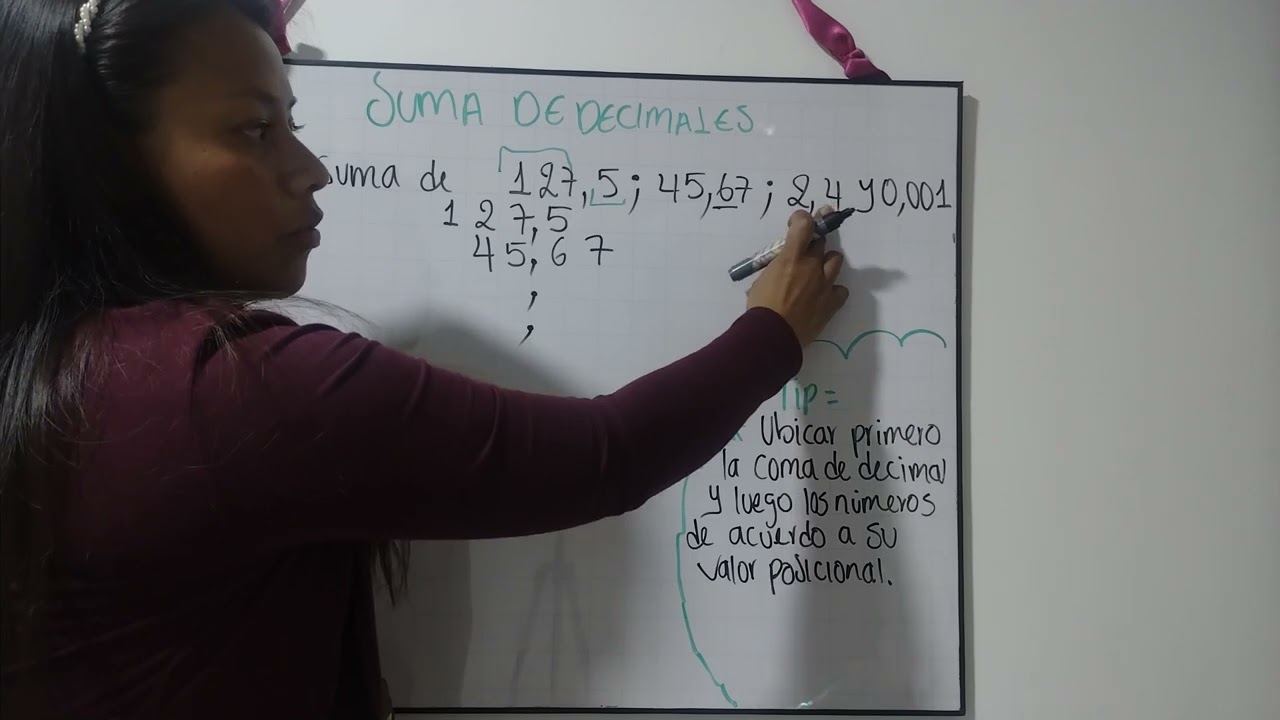 SUMA DE DECIMALES
Suma de 127,5; 45,67; 2,4 y 0,001
127,5
45,67
,
,
Tip=
Ubicar primero
la coma de decimal
y luego los números
de acuerdo a su
valor posicional.